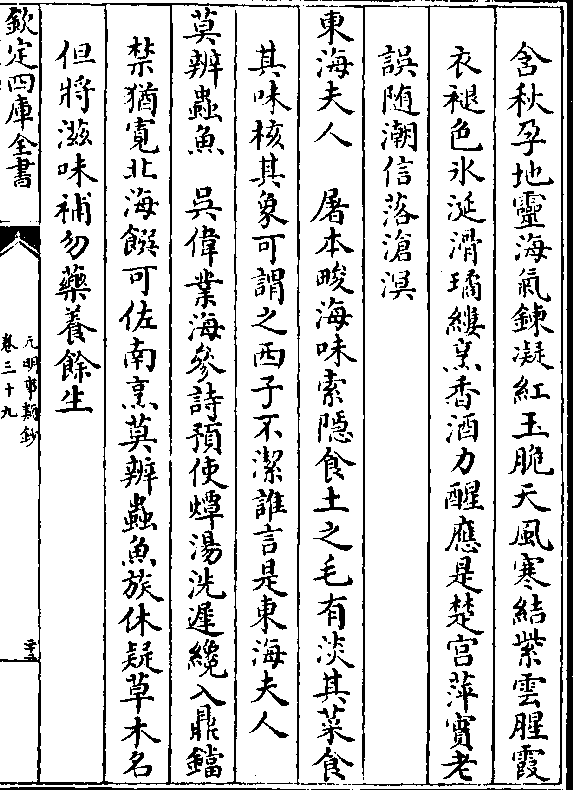 含秋孕地靈海氣鍊凝紅玉脆天風寒結紫雲腥霞
衣褪色氷涎滑璚縷烹香酒力醒應是楚宫萍實老
誤随潮信落滄溟
東海夫人　屠本畯海味索隠食土之毛有淡其菜食
其味核其象可謂之西子不潔誰言是東海夫人
莫辨蟲魚　吳偉業海參詩預使燂湯洗遲纔入鼎鐺
禁猶寛北海饌可佐南烹莫辨蟲魚族休疑草木名
但將滋味補勿藥養餘生
欽定四庫全書
元明事類鈔
卷三十九
二十三